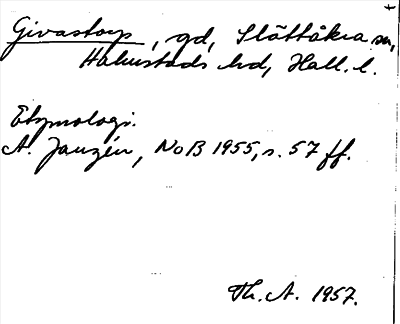 Givastorp, gd, Slättåkra sn,
Halmstads hd, Hall. l.
Etymologi.
A. Janzén, NoB 1955, s. 57 ff.
Th. A. 1957.